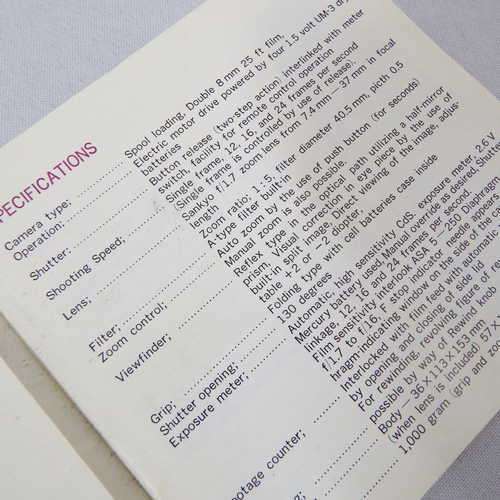 PECIFICATIONS
Camera type: Spool loading, Double 8 mm 25 ft film,
Operation: Electric motor drive powered by four 1.5 volt UM-3 dry
batteries
Shutter: Button release (two-step action) interlinked with meter
switch, facility for remote control operation
Shooting Speed; Single frame, 12, 16, and 24 frames per second
(Single frame is controlled by use of release).
Lens: Sankyo f/1.7 zoom lens from 7.4 mm—37 mm in focal
length
Zoom ratio; 1:5, filter diameter 40.5 mm, picth 0.5
Filter; A-type filter built-in
Zoom control; Auto zoom by the use of push button (for seconds)
Manual zoom is also possible.
Viewfinder; Reflex type of the optical path utilizing a half-mirror
prism, Visual correction in eye piece by the use of
built-in split image, Direct viewing of the image, adjus-
table +2 or -2 diopter,
Grip: Folding type with cell batteries case inside
Shutter opening; 130 degrees
Exposure meter; Automatic, high sensitivity CdS, exposure meter, 2.6 V
Mercury battery used, Manual override as desired, Shutter
linkage, 12, 16, and 24 frames per second,
Film sensitivity interlock ASA 5—250 Diaphragm
f/1.7 to f/16, F stop indicator needle appears
hragm-indicating window on top side of the
otage counter; Interlocked with film feed with automatic
by opening and closing of side lid
For rewinding, revolving figure 0
possible by way of Rewind knob
Body 36×113×153 mm
(when lens is included, 57×1
1,000 gram (grip and